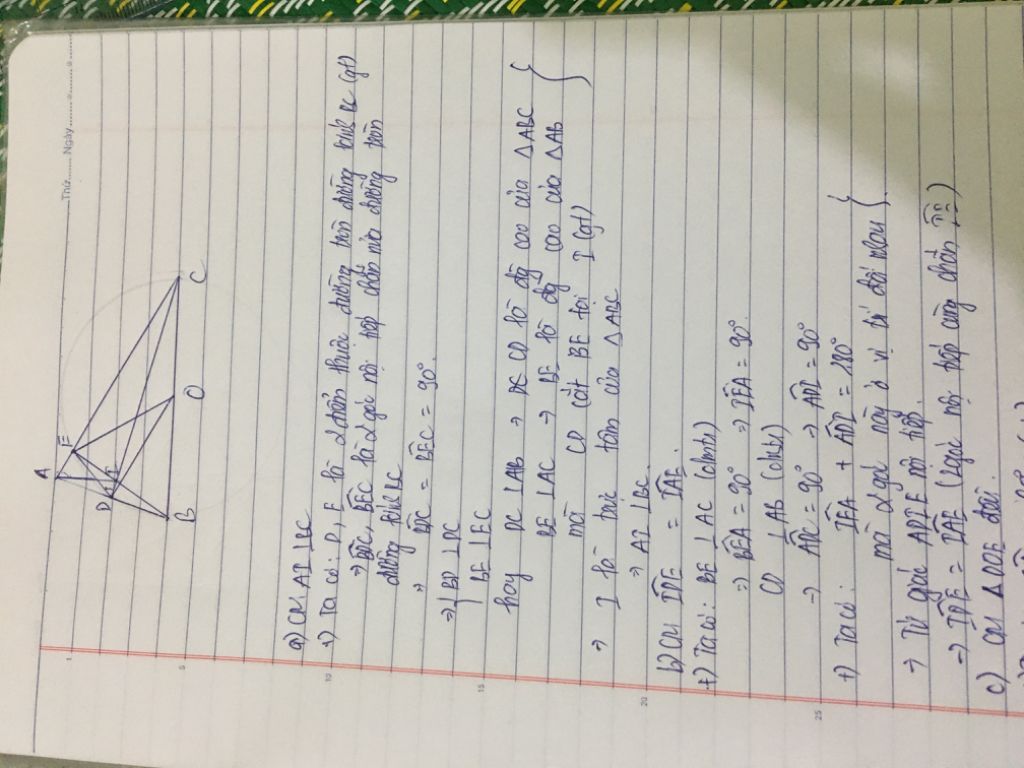 Thứ ........ Ngày ........
A
E
D
I
B
O
C
1
5
10
15
20
25
a) CM AI ⊥ BC
+) Ta có: D, E là 2 điểm thuộc đường tròn đường kính BC (gt)
⇒ BDC, BEC là 2 góc nội tiếp chắn nửa đường tròn
đường kính BC
⇒ BDC = BEC = 90°
⇒ { BD ⊥ DC
BE ⊥ EC
hay DC ⊥ AB → CD là đg cao của △ABC
BE ⊥ AC → BE là đg cao của △AB
mà CD cắt BE tại I (gt)
⇒ I là trực tâm của △ABC
⇒ AI ⊥ BC.
b) CM IDE = IAE.
+) Ta có: BE ⊥ AC (cmt)
⇒ BEA = 90° ⇒ IEA = 90°.
CD ⊥ AB (cmt)
→ ADC = 90° → ADI = 90°
+) Ta có: IEA + ADI = 180°
mà 2 góc này ở vị trí đối nhau
→ Tứ giác ADIE nội tiếp.
→ IDE = IAE (2 góc nội tiếp cùng chắn IE)
c) CM △ODE đều.